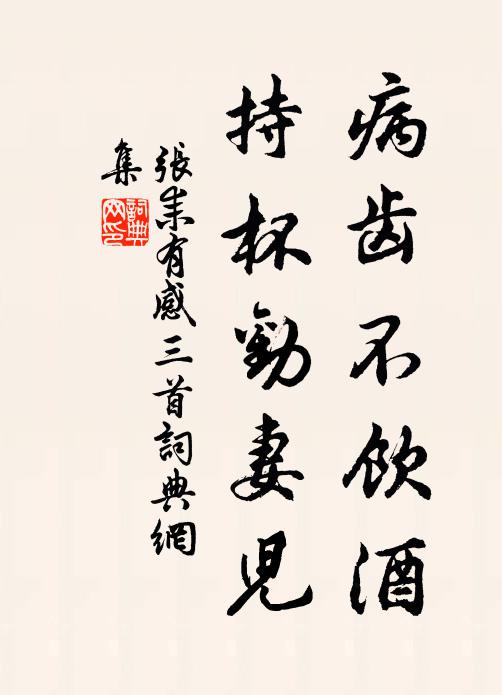 病齿不飲酒
持杯勸妻兒
張耒有感三首詞典網
集
詞典
网印